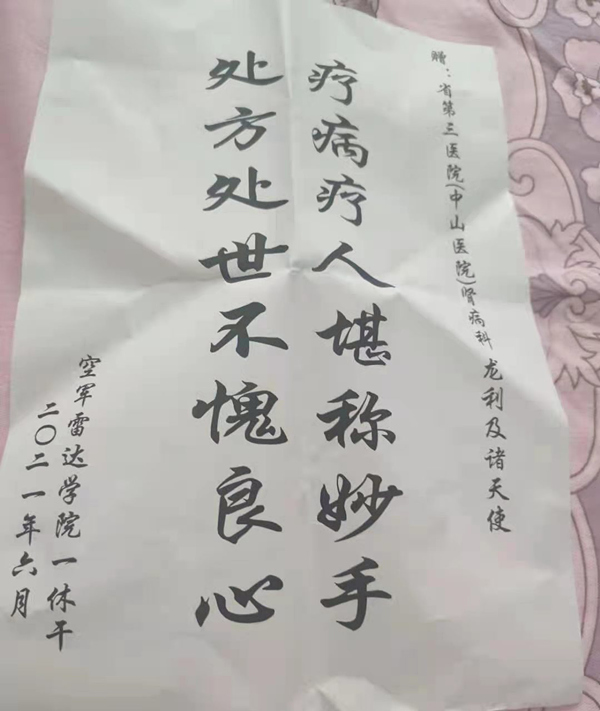 赠：省第三医院(中山医院)肾病科 龙利及诸天使
疗病疗人堪称妙手
处方处世不愧良心
空军雷达学院一休干
二〇二一年六月